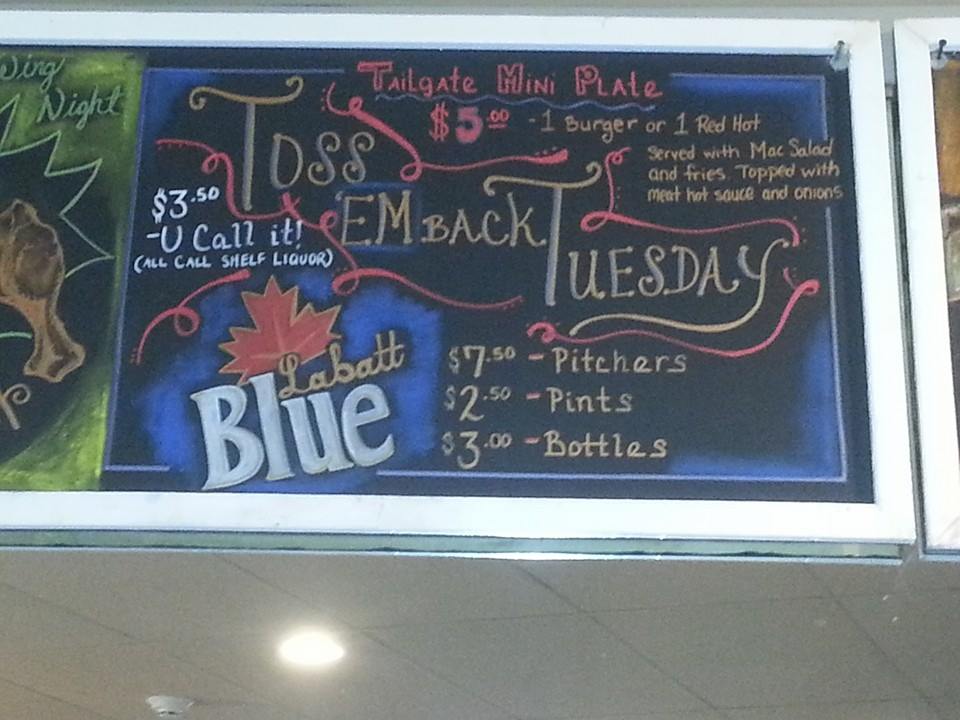 Wing
Night
Tailgate Mini Plate
$5.00 -1 Burger or 1 Red Hot
Served with Mac Salad
and fries. Topped with
meat hot sauce and onions
Toss
EM BACK
TUESDAY
$3.50
-U Call it!
(ALL CALL SHELF LIQUOR)
Labatt
Blue
$7.50 - Pitchers
$2.50 - Pints
$3.00 - Bottles